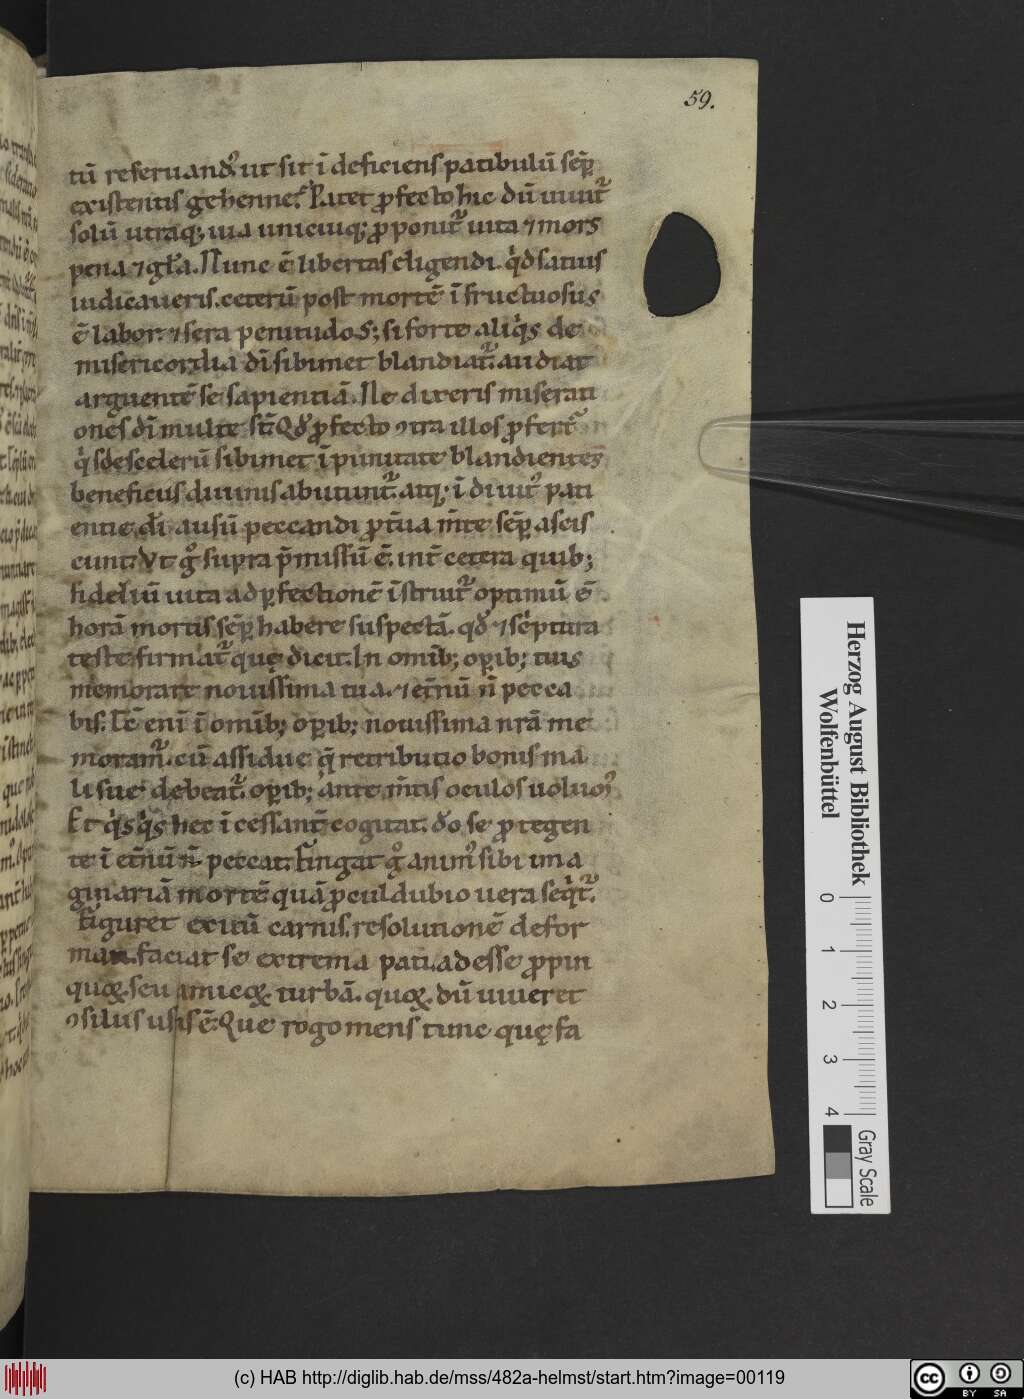 59.
tū reseruandꝰ ut sit ī deficiens patibulū sēp
existentis gehenne. Patet pfecto hic dū uiuit᷑
solū utraq; uia unicuiq; pponit᷑ uita ⁊ mors
pena ⁊ gl̄a. Nunc ē libertas eligendi. qd̓ satius
iudicaueris. ceterū post mortē īfructuosus
ē labor. ⁊ sera penitudo; si forte aliq̇s de
misericordia dī sibimet blandiat᷑. audiat
arguentē se sapientiā. Ne dixeris miserati
ones dī multe st̄. Qd̓ pfecto ꝯtra illos pfert᷑
q̇ s de scelerū sibimet īpunitate blandientes
beneficiis diuinis abutunt᷑. atq; ī diuit
entie dī ausū peccandi ptīua m̄te sēp
cunt. Vt g̊ supra p̄missū ē. int̄ cetera quib;
fideliū uita ad pfectionē īstruit᷑ optimū ē
horā mortis sēp habere suspectā. qd̓ ⁊ sc̓ptura
teste firmat᷑ quę dicit. In omīb; opib; tuis
memorare nouissima tua. ⁊ et̄nū n̄ pecca
bis. Tc̄ enī ī omīb; opib; nouissima nr̄a me
moram᷑. cū assidue q̄ retributio bonis ma
lisue debeat᷑. opib; ante m̄tis oculos uoluimꝰ
Et q̇s q̇s hec īcessant᷑ cogitat. dō se protegen
te ī et̄nū n̄ peccat. Fingat g̊ animꝰ sibi ima
ginariā mortē quā pcul dubio uera seq̇t᷑.
Figuret exitū carnis. resolutionē defor
man. faciat se extrema pati. adesse propin
quoꝝ. seu amicoꝝ turbā. quoꝝ. dū uiueret
ꝯsiliis usꝰ ē. Que rogo mens tunc quę fa
Herzog August Bibliothek
Wolfenbüttel
0 1 2 3 4
Gray Scale
(c) HAB http://diglib.hab.de/mss/482a-helmst/start.htm?image=00119
CC BY SA